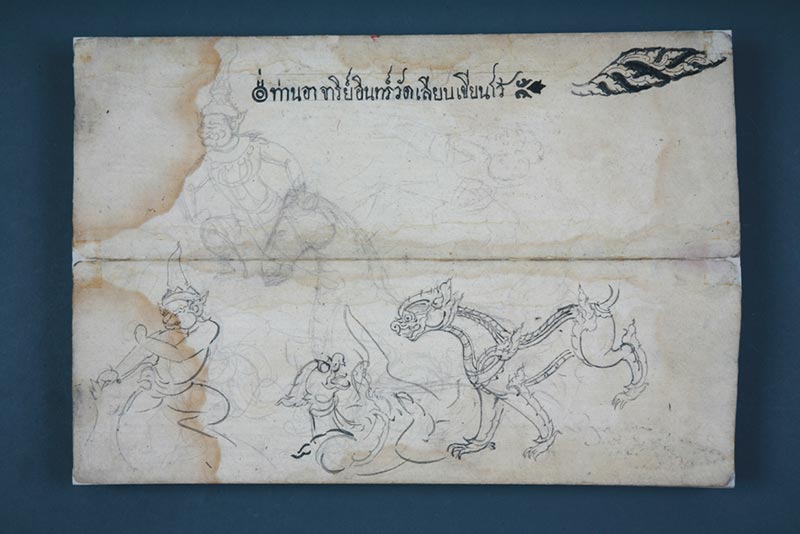 ๏ ท่านอาจาริย์อินทร์วัดเลียบเขียนไว้ ๚